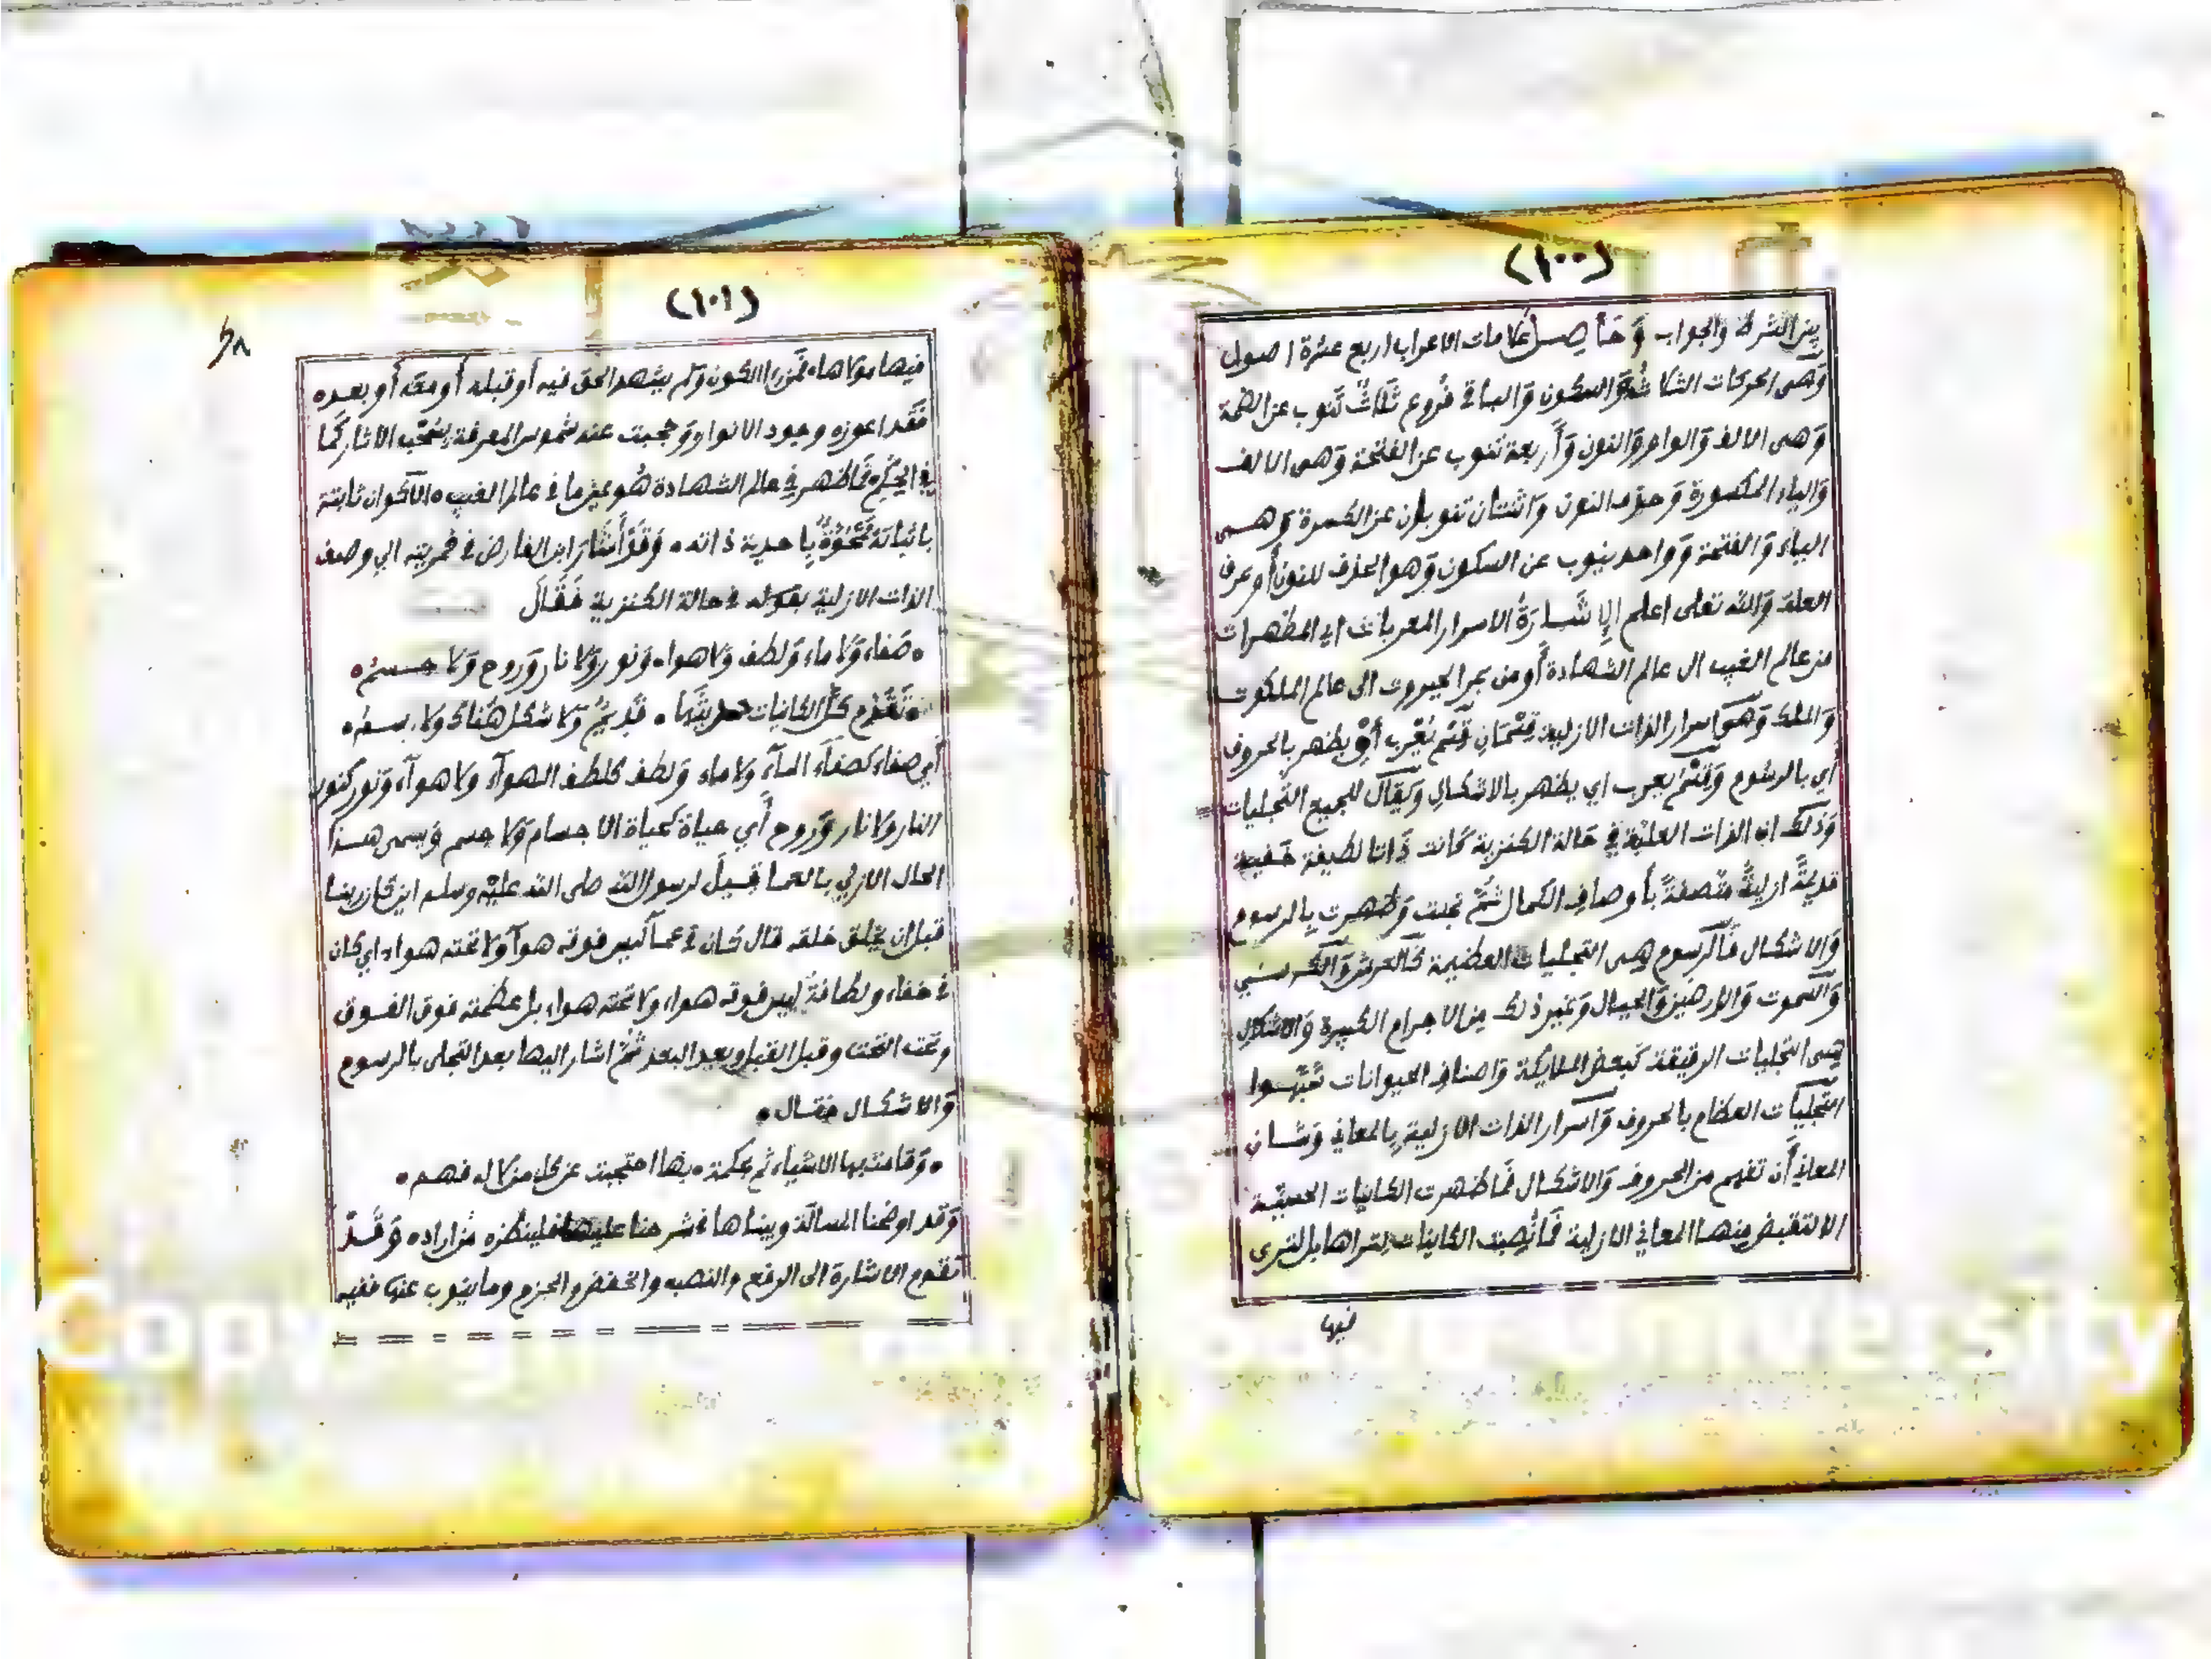 (١٠٠)
بين الشرط والجواب وَحَاصِـل عَلامات الاعراب اربع عشرة اصول
وَهى الحركات الثلاثة وَالسكون وَالباقي فروع ثلاث تنوب عن الضمة
وَهى الالف وَالواو وَالنون وَأربعة تنوب عن الفتحة وَهى الالف
وَالياء المكسورة وَحذف النون وَاثنتان تنوبان عن الكسرة وَهـى
الياء وَالفتحة وَواحد ينوب عن السكون وَهو الحذف للنون أو حرف
العلة وَالله تعلى اعلم الاشَـارَةُ الاسرار المعربات اي المظهرات
من عالم الغيب الى عالم الشهادة أو من بحر الجبروت الى عالم الملكوت
وَالملك وَهى اسرار الذات الازلية قِسْمَانِ قِسْم يُعْرب أي يظهر بالحروف
أي بالرسوم وَقِسْم يعرب اي يظهر بالاشكال وَيقال للجميع التجليات
وَذلك ان الذات العلية في حَالة الكنزية كَانت ذَاتا لطيفة خَفية
قديمَةً ازليةً متصفةً بأوصاف الكمال ثُمَّ تجلت وَظهرت بالرسوم
وَالاشكال فَالرسوم هِى التجليات العظيمة كَالعرش وَالكرسي
وَالسموت وَالارضين وَالجبال وَغير ذلك مِن الاجرام الكبيرة وَالاشكال
هِى التجليات الرقيقة كَبعض الملايكة وَاصناف الحيوانات شَبّهـوا
التجليات العظام بالحروف وَاسرار الذات الازلية بِالمعاني وَشـان
المعاني أن تفهم من الحروف وَالاشكـال فَما ظهرت الكاينات الحسية
الا لتقبض مِنهـا المعاني الازلية فَمَا نُصِبت الكاينات لِتراها بل لترى
فيها
(١٠١)
٤٨
فيها مولاها فَمَن رءا الكون وَلم يشهد الحق فيه أو قبله أو معه أو بعده
فَقَد اعوزه وجود الانوار وَحجبت عنه شموس المعرفة بسحب الاثار كَما
في الحِكَم فَما ظهر في عالم الشهادة هُو عين ما في عالم الغيب الأكوان ثابتة
باثباته مَمْحُوَّةٌ بأحدية ذاته وَقَد أشَارَ ابن الفارض في خمريته الي وصف
الذات الازلية بقوله في حالة الكنزية فَقَالَ
صَفاء وَلا ماء وَلطف وَلا هواء وَنور وَلا نار وَروح وَلا جـسمُ
تَقَدَّم كُلَّ الكاينات حديثها قَديمٌ وَلا شكل هُناك وَلا رسـمُ
أي صفاء كصفاء الماء وَلا ماء وَلطف كلطف الهوآء ولا هوآء وَنور كنور
النار ولا نار وَروح أي حياة كَحياة الاجسام وَلا جسم وَيسمى هـذا
الحال الازلي بالعما قيـلَ لرسول الله صلى الله عليه وسلم اين كَان ربنا
قبل ان يخلق خلقه قال كَان في عمـآ ليس فوقه هوآ وَلا تحته هواء اي كان
في خفاء ولطافةٍ ليس فوقه هواء ولا تحته هواء بل عظمته فوق الفـوق
وتحت التحت وقبل القبل وبعد البعد ثُمَّ اشار اليها بعد التجلى بالرسوم
وَالاشكـال فقـال
وَقامت بها الاشياء ثم لحكمة بها احتجبت عن كل من لا له فهـم
وَقد اوضحنا المسالة وبيناها في شرحنا عليها فلينظره من اراده وَقَـدْ
تقدم الاشارة الى الرفع والنصب والخفض والجزم وما ينوب عنها ففيه
Copy University